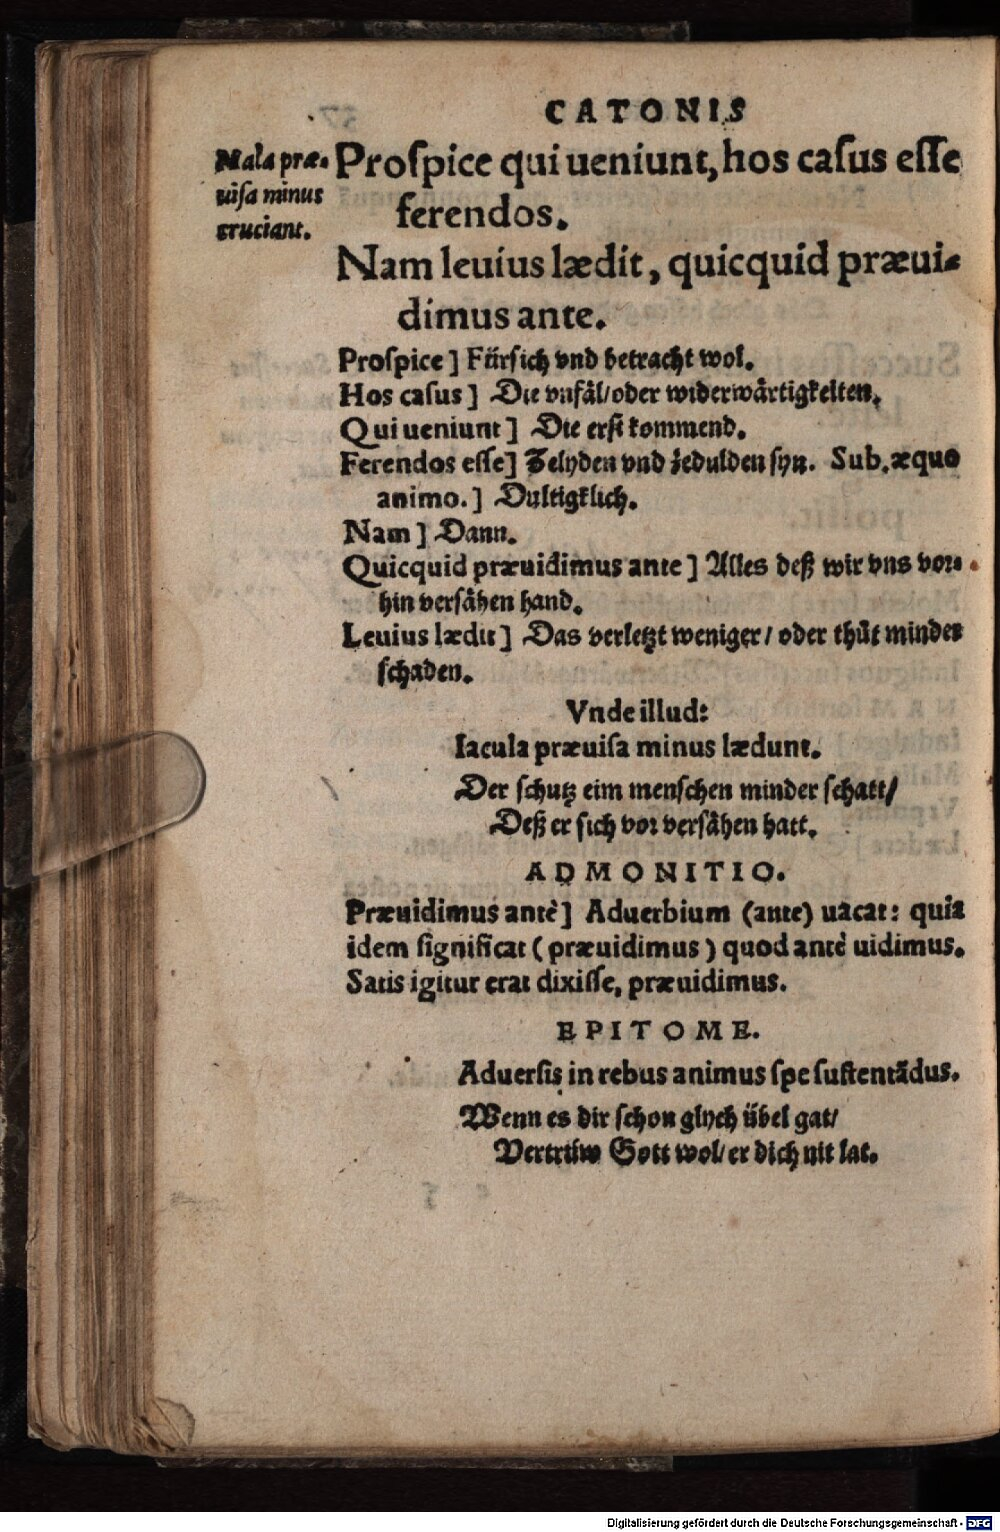 CATONIS
Mala præ-
uiſa minus
cruciant.
Proſpice qui ueniunt, hos caſus eſſe
ferendos.
Nam leuius lædit, quicquid præui-
dimus ante.
Proſpice] Fürſich vnd betracht wol.
Hos caſus] Die vnfäl/oder widerwärtigkeiten.
Qui ueniunt] Die erſt kommend.
Ferendos eſſe] Zelyden vnd zedulden ſyn. Sub. æquo
animo.] Dultigklich.
Nam] Dann.
Quicquid præuidimus ante] Alles deß wir vns vor-
hin verſähen hand.
Leuius lædit] Das verletzt weniger/ oder thůt minder
ſchaden.
Vnde illud:
Iacula præuiſa minus lædunt.
Der ſchutz eim menſchen minder ſchatt/
Deß er ſich vor verſähen hatt.
ADMONITIO.
Præuidimus antè] Aduerbium (ante) uacat: quia
idem ſignificat (præuidimus) quod antè uidimus.
Satis igitur erat dixiſſe, præuidimus.
EPITOME.
Aduerſis in rebus animus ſpe ſuſtentādus.
Wenn es dir ſchon glych übel gat/
Vertrüw Gott wol/ er dich nit lat.
Digitalisierung gefördert durch die Deutsche Forschungsgemeinschaft - DFG